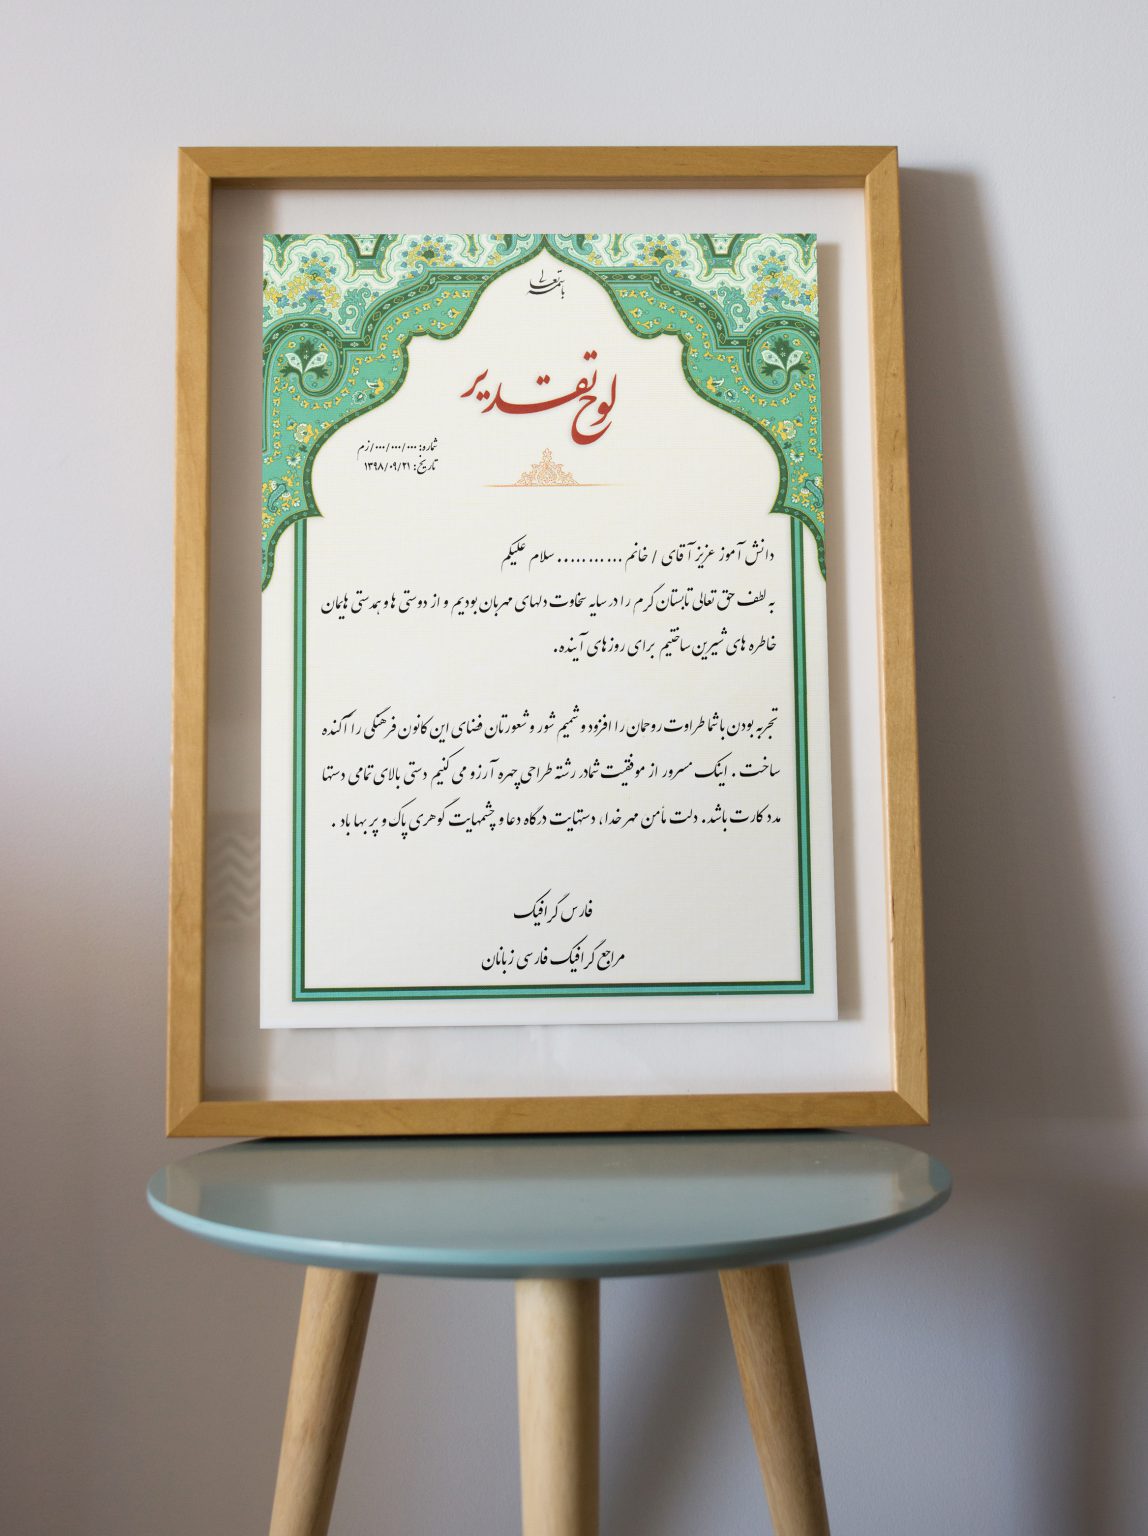 باسمه تعالی
لوح تقدیر
شماره: ۰۰۰/۰۰۰/۰۰۰/زم
تاریخ: ۱۳۹۸/۰۹/۲۱
دانش آموز عزیز آقای / خانم .......... سلام علیکم
به لطف حق تعالی تابستان گرم را در سایه سخاوت دلهای مهربان بودیم و از دوستی ها و همدستی هایمان
خاطره های شیرین ساختیم برای روزهای آینده.
تجربه بودن با شما طراوت روحمان را افزود و شمیم شور و شعورتان فضای این کانون فرهنگی را آکنده
ساخت . اینک مسرور از موفقیت شما در رشته طراحی چهره آرزو می کنیم دستی بالای تمامی دستها
مدد کارت باشد. دلت مأمن مهر خدا، دستهایت درگاه دعا و چشمهایت گوهری پاک و پر بها باد .
فارس گرافیک
مراجع گرافیک فارسی زبانان